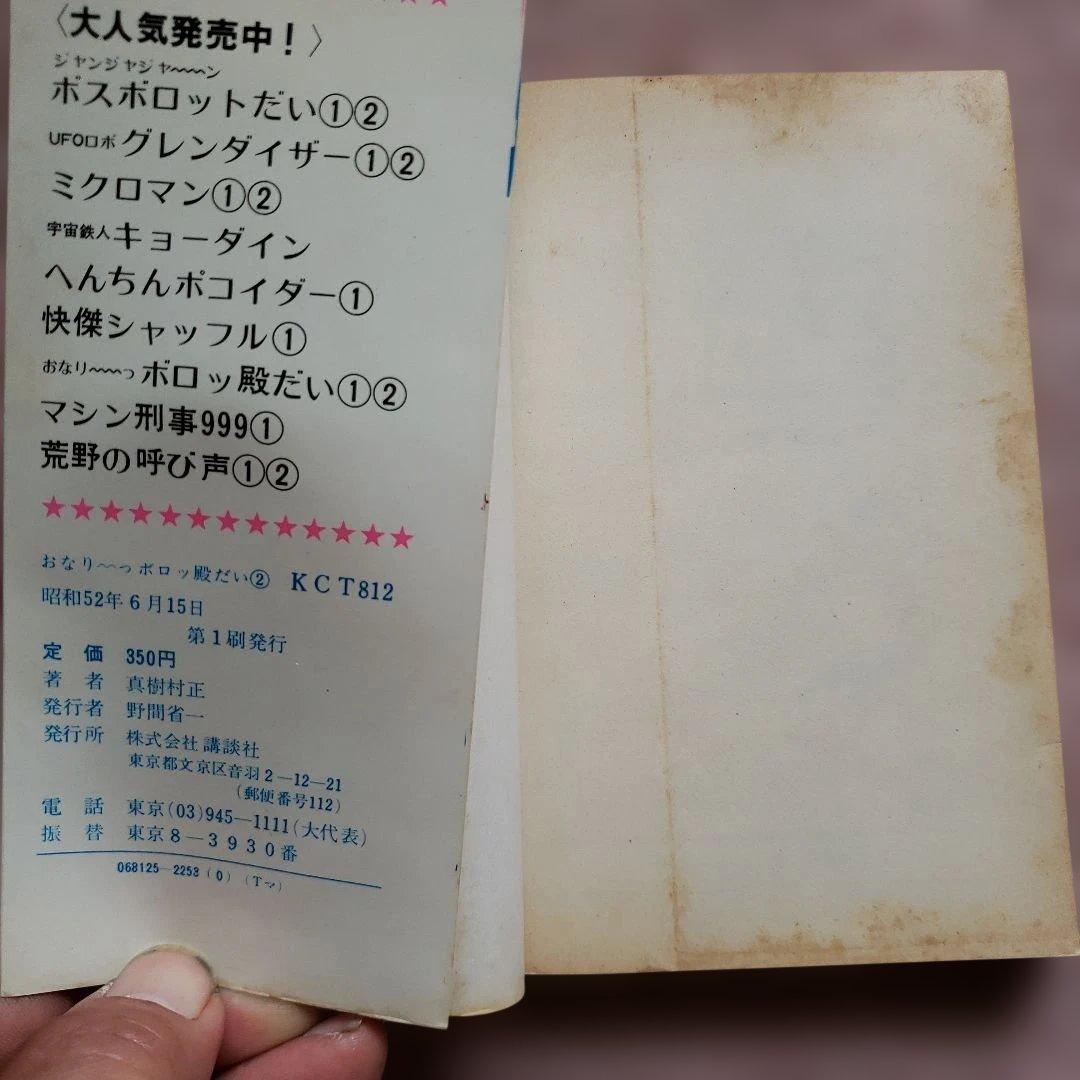 〈大人気発売中！〉
ジャンジャジャ〜〜〜ン
ボスボロットだい①②
UFOロボ グレンダイザー①②
ミクロマン①②
宇宙鉄人キョーダイン
へんちんポコイダー①
快傑シャッフル①
おなり〜〜〜っ ボロッ殿だい①②
マシン刑事999①
荒野の呼び声①②
★★★★★★★★★★★★★
おなり〜〜っ ボロッ殿だい② KCT812
昭和52年6月15日
第1刷発行
定 価 350円
著 者 真樹村正
発行者 野間省一
発行所 株式会社 講談社
東京都文京区音羽2―12―21
（郵便番号112）
電 話 東京(03)945―1111(大代表)
振 替 東京8―3930番
068125―2253 (0) (Tマ)